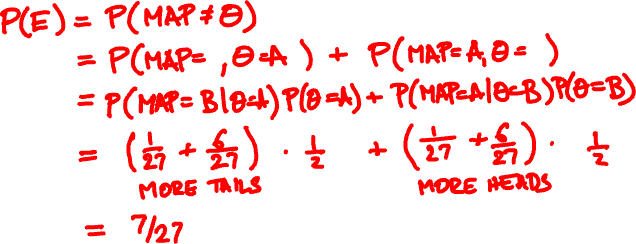 P(E) = P(MAP ≠ Θ)
= P(MAP= , Θ=A ) + P(MAP=A, Θ= )
= P(MAP=B|Θ=A)P(Θ=A) + P(MAP=A|Θ=B)P(Θ=B)
= (1/27 + 6/27) · 1/2 + (1/27 + 6/27) · 1/2
MORE TAILS MORE HEADS
= 7/27